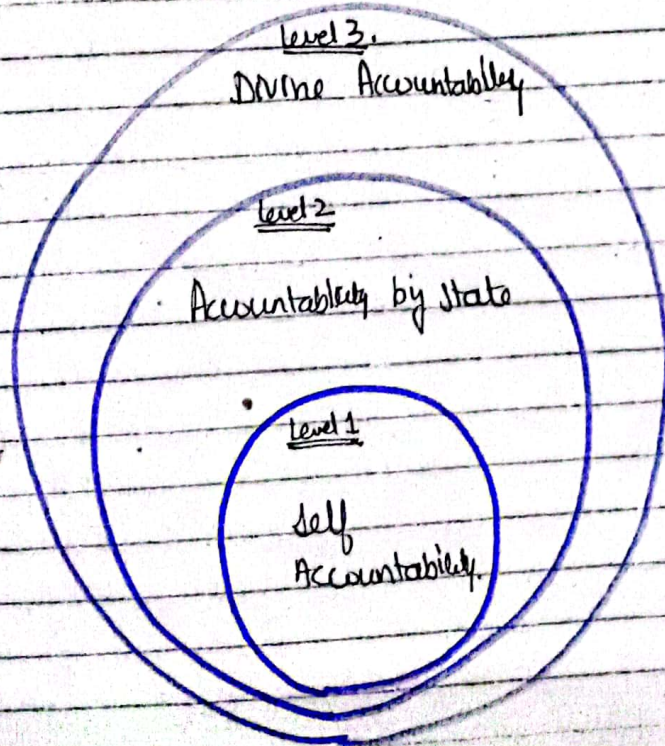 Level 3.
Divine Accountability
Level 2
Accountability by State
Level 1
Self
Accountability.